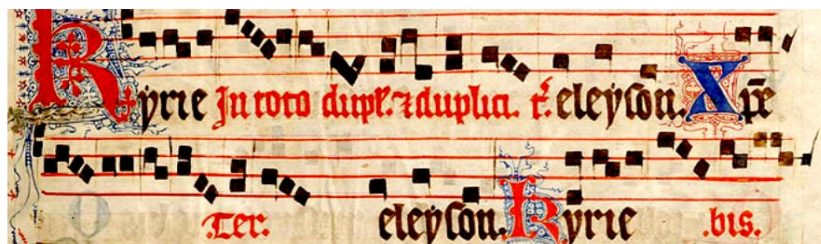 Kyrie In toto dupl'. ⁊ duplici. t'. eleyson. Xp̄e
.Ter. eleyson. Kyrie .bis.